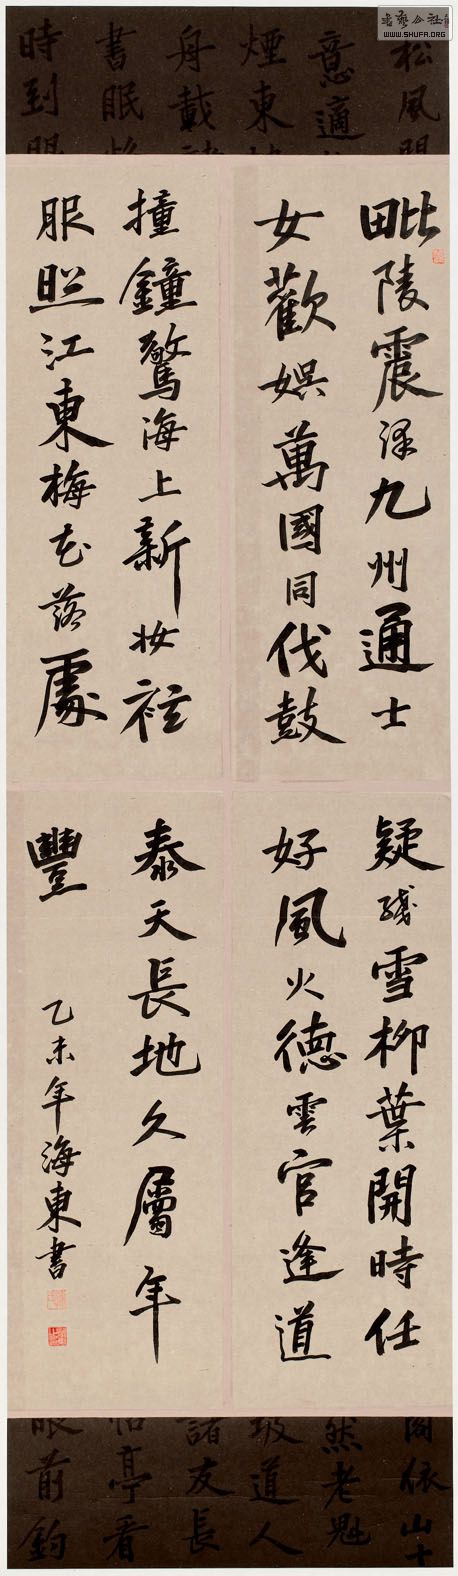 書藝公社
WWW.SHUFA.ORG
松風
意適
煙東
舟載
書眠
時到眼
毗陵震澤九州通士
女歡娛萬國同伐鼓
撞鐘驚海上新妝袨
服照江東梅花落處
疑殘雪柳葉開時任
好風火德雲官逢道
泰天長地久屬年
豐
乙未年海東書
閣依山
然老魁
坡道人
諸友長
怡亭看
眼前鈞